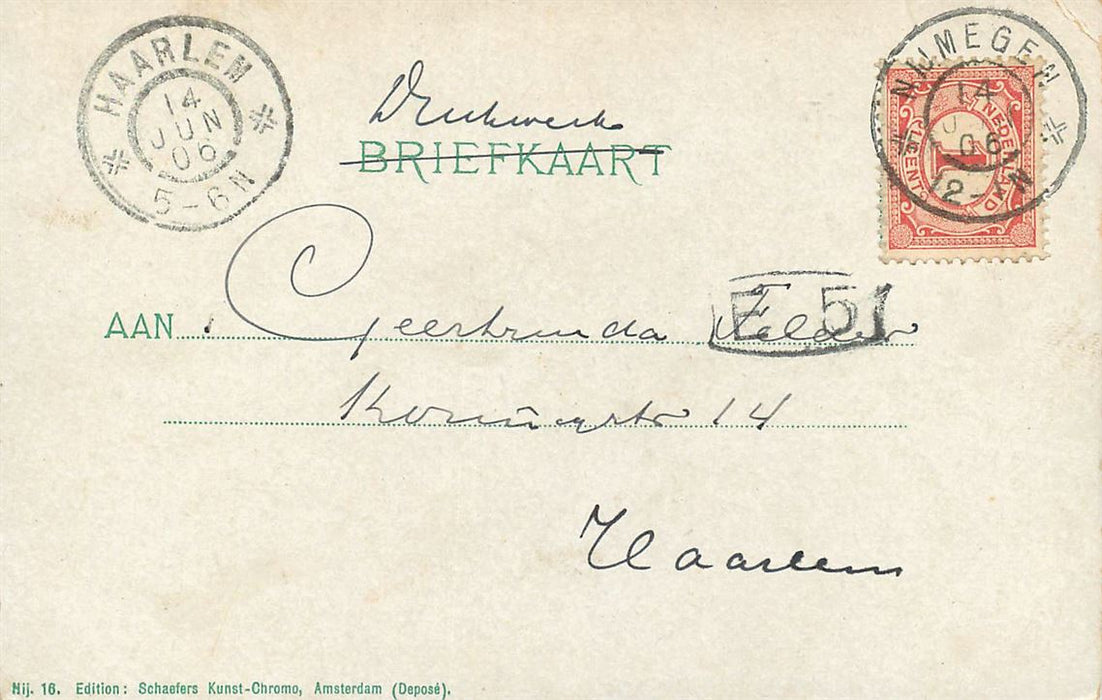 HAARLEM
14
JUN
06
5-6N
NIJMEGEN
14
06
12-1N
NEDERLAND
1
CENT
Drukwerk
BRIEFKAART
E 51
AAN Geertruida Felder
Koningstr 14
Haarlem
Nij. 16. Edition: Schaefers Kunst-Chromo, Amsterdam (Deposé).